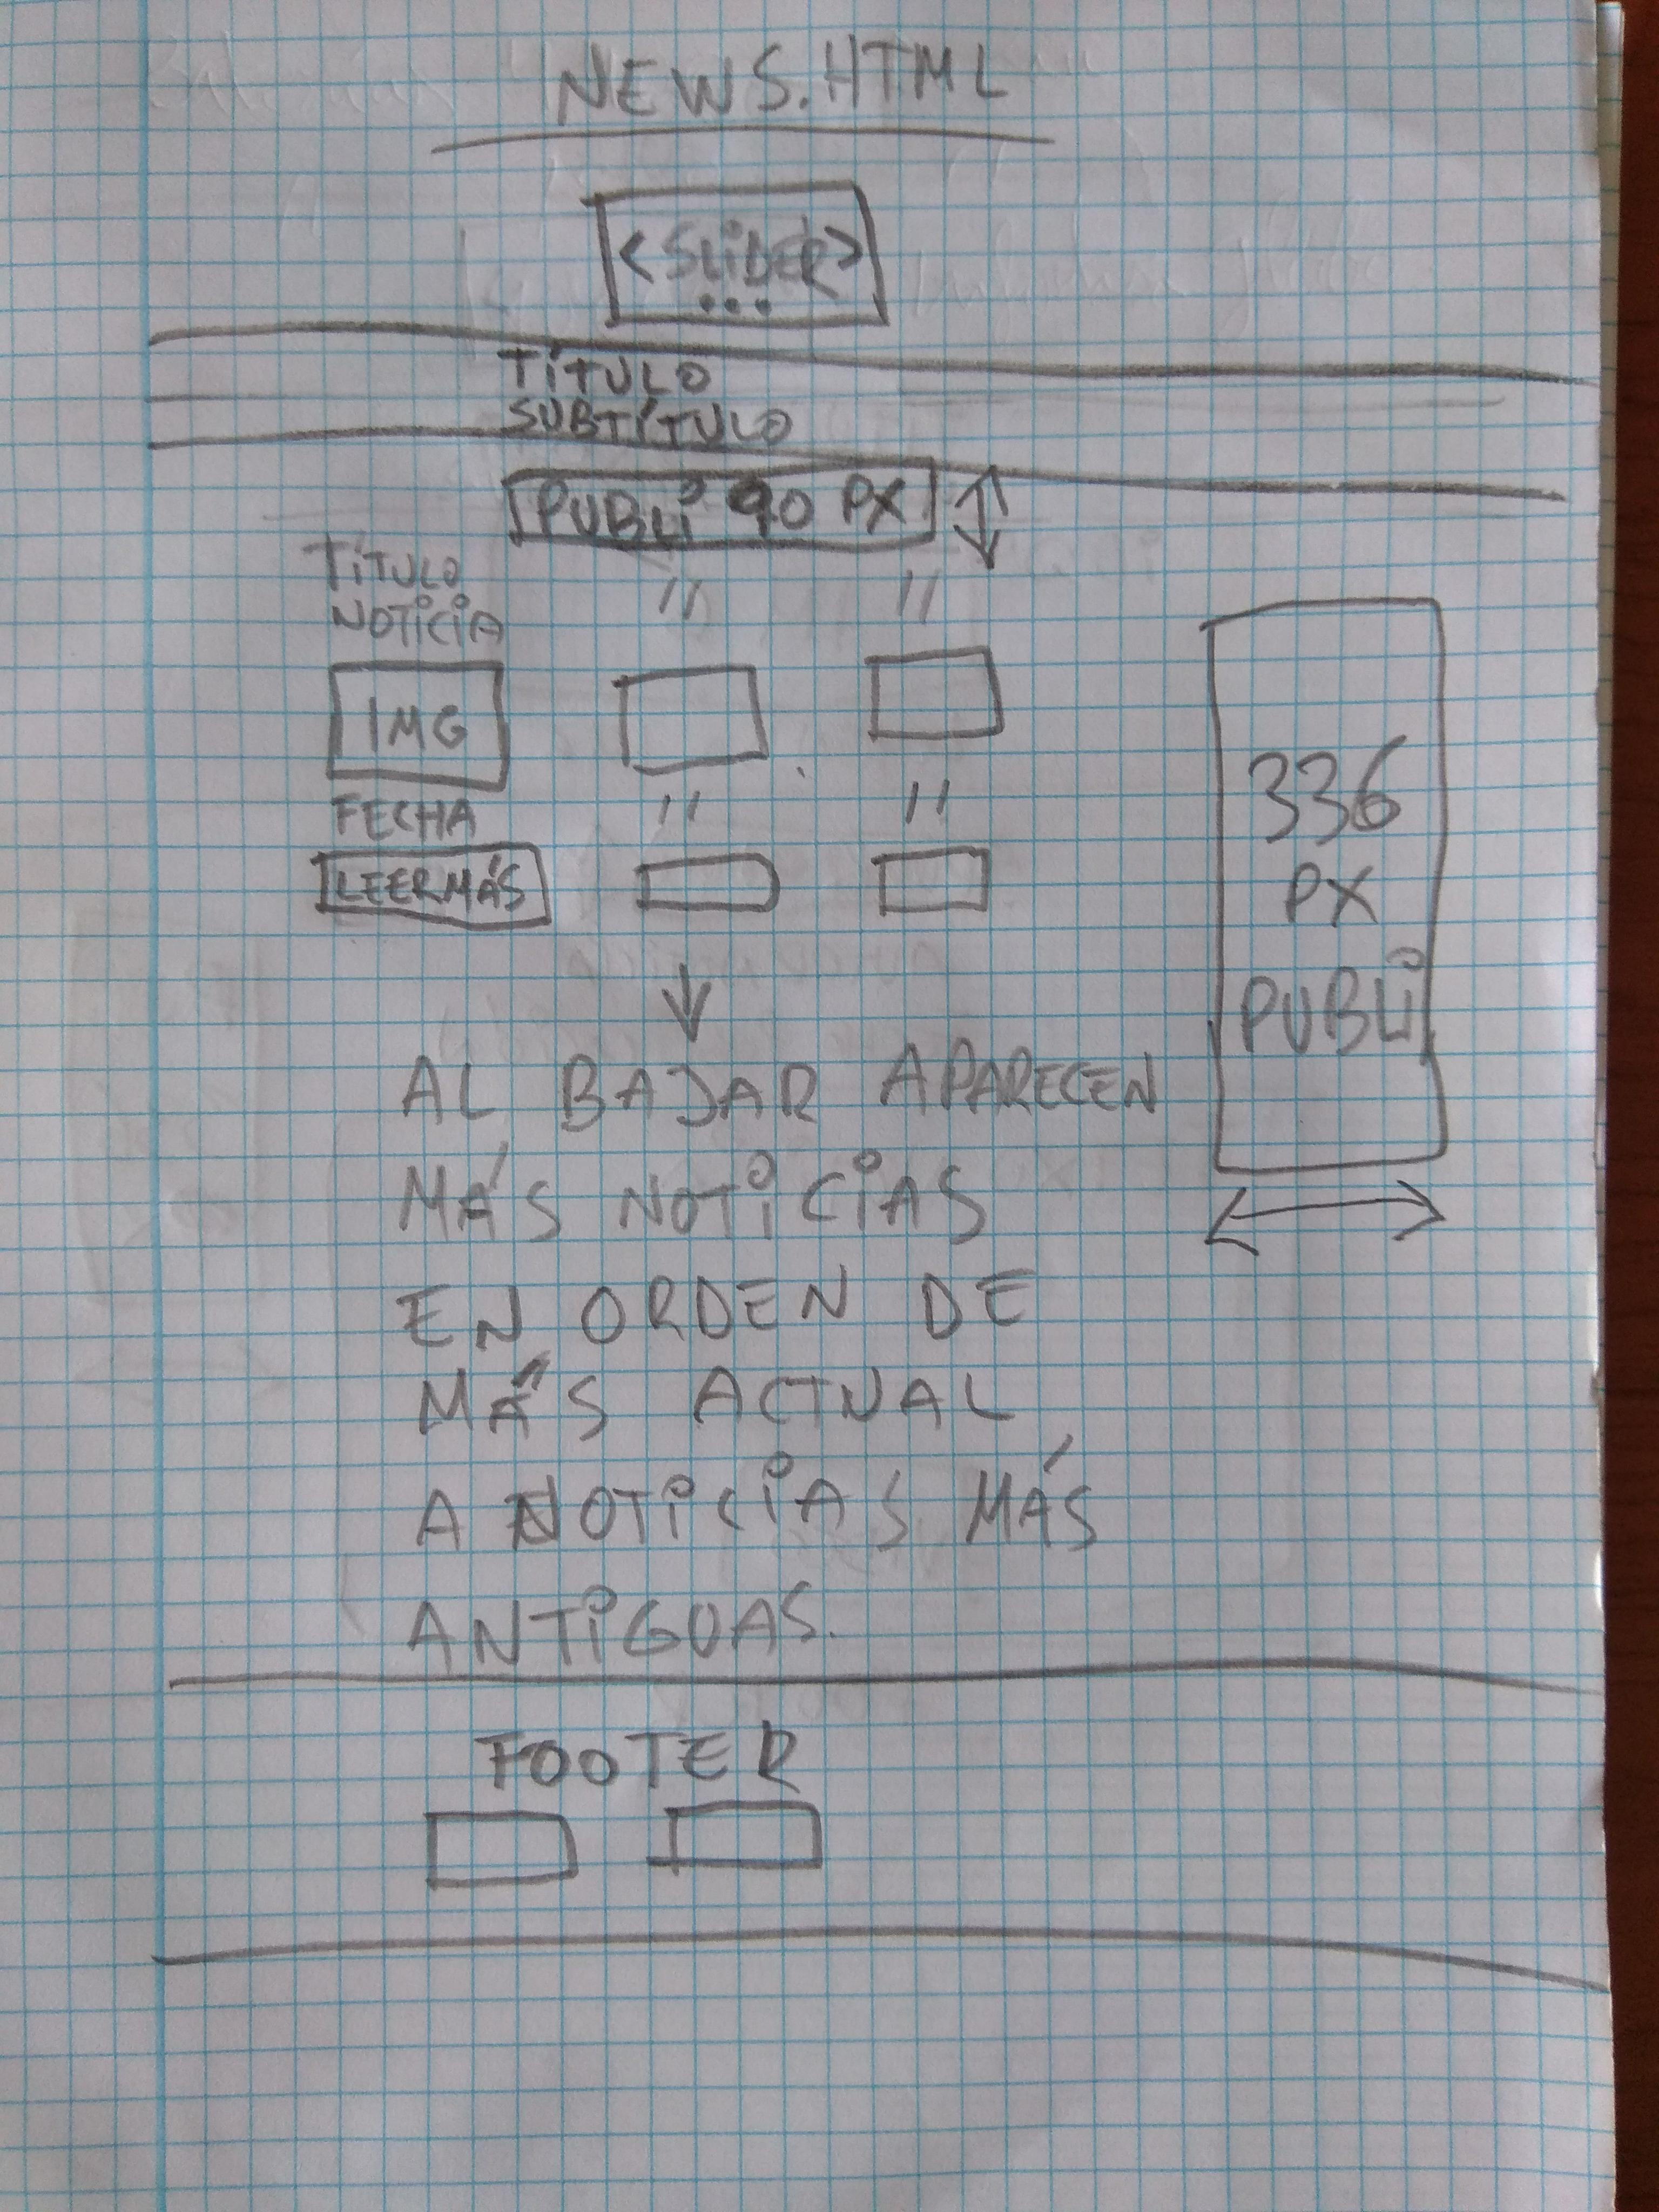 NEWS.HTML
< SLIDER >
...
TÍTULO
SUBTÍTULO
PUBLI 90 PX
TÍTULO
NOTICIA
" "
IMG
FECHA
" "
LEER MÁS
336
PX
PUBLI
AL BAJAR APARECEN
MÁS NOTICIAS
EN ORDEN DE
MÁS ACTUAL
A NOTICIAS MÁS
ANTIGUAS.
FOOTER